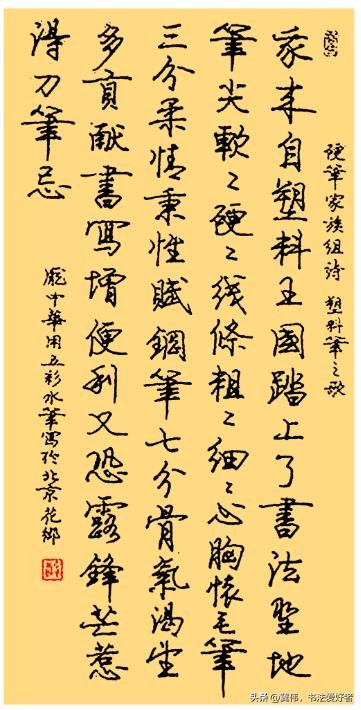 硬筆家族組詩 塑料筆之歌
我来自塑料王國踏上了書法聖地
筆尖軟〻硬〻线條粗〻細〻心胸懷毛筆
三分柔情秉性賦鋼筆七分骨氣渴望
多貢献書寫增便利又恐露鋒芒惹
得刀筆忌
龐中華用五彩水筆寫於北京花鄉
头条 @冀伟,书法爱好者